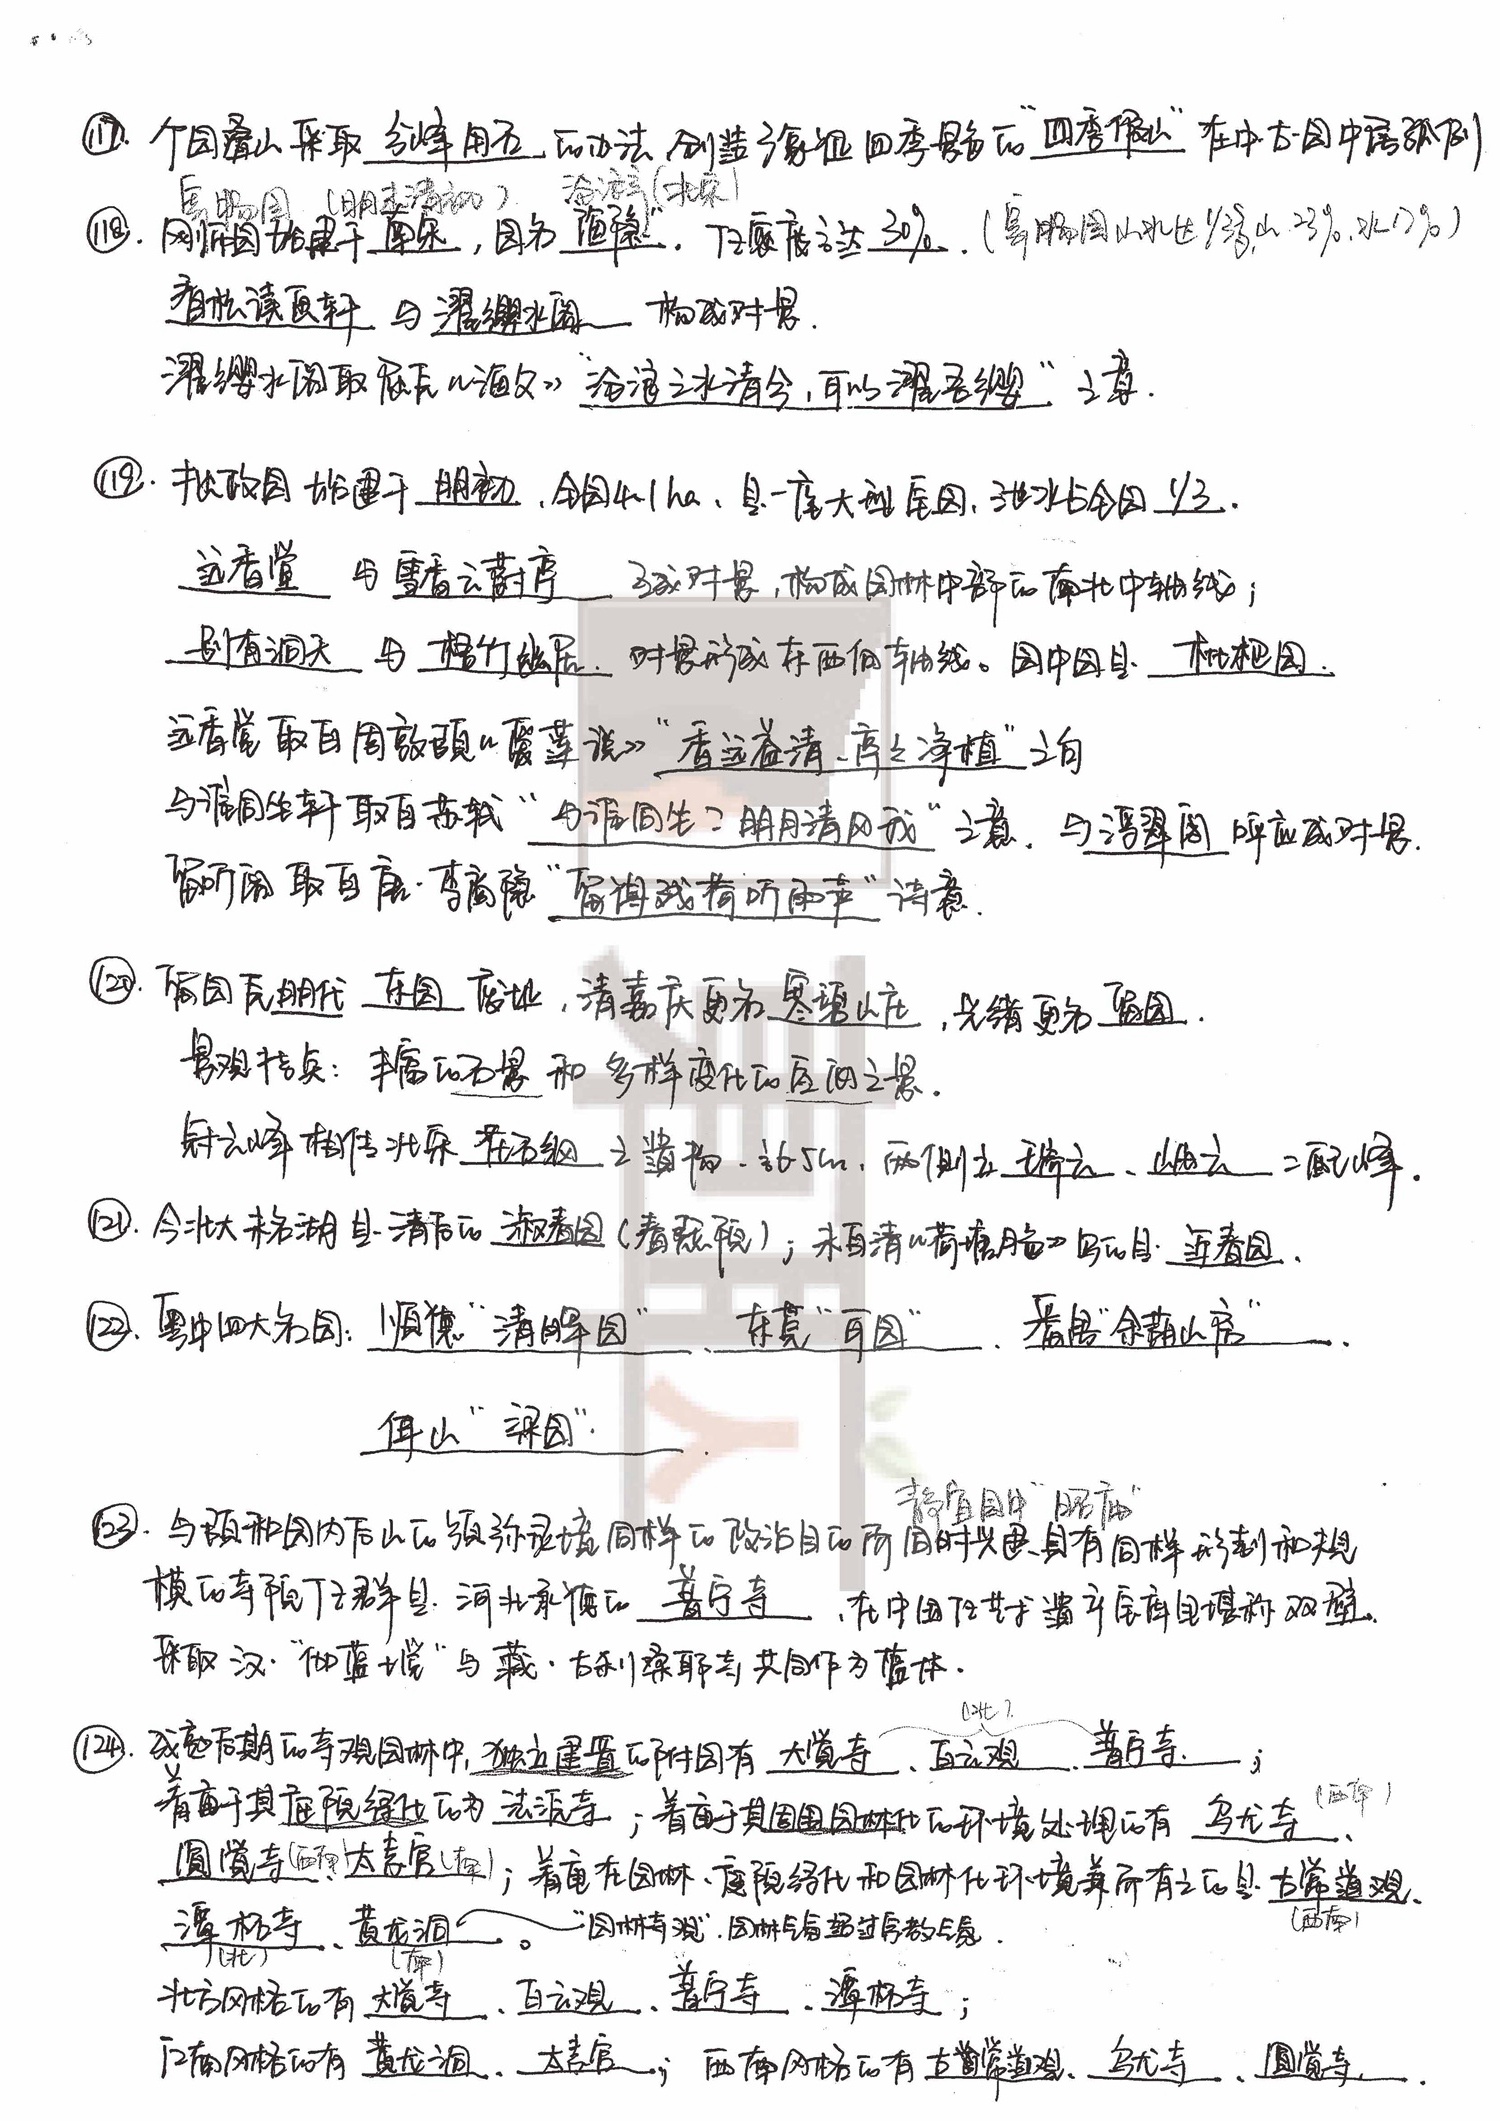 117. 个园叠山采取 分峰用石 的办法,创造了象征四季景色的"四季假山"在中古园中属孤例
寄畅园 (明末清初) 沧浪亭(北宋)
118. 网师园始建于 南宋,因为"渔隐". 建筑密度达 30%. (寄畅园山水比1/3强,山23%,水17%)
看松读画轩 与 濯缨水阁 构成对景.
濯缨水阁取屈原《渔父》"沧浪之水清兮,可以濯吾缨"之意.
119. 拙政园 始建于 明初,全园4.1ha,是一座大型宅园,理水占全园 1/3.
远香堂 与 雪香云蔚亭 互成对景,构成园林中部的南北中轴线;
别有洞天 与 梧竹幽居 对景形成东西向轴线。园中园是 枇杷园.
远香堂取自周敦颐《爱莲说》"香远益清、亭亭净植"之句
与谁同坐轩取自苏轼"与谁同坐?明月清风我"之意. 与浮翠阁呼应成对景.
留听阁取自唐·李商隐"留得残荷听雨声"诗意.
120. 留园原明代 东园 废址,清嘉庆更名 寒碧山庄,光绪更名 留园.
景观特点:丰富的石景 和 多样变化的空间之景.
冠云峰相传北宋 花石纲 之遗物、高6.5m、两侧立 瑞云、岫云 二配峰.
121. 今北大未名湖是清后的 淑春园(春熙院);朱自清《荷塘月色》写的是 近春园.
122. 粤中四大名园:顺德"清晖园"、东莞"可园"、番禺"余荫山房".
佛山"梁园".
静宜园中"昭庙"
123. 与颐和园内后山的须弥灵境同样的政治目的所同时兴建、具有同样形制和规
模的寺院建群是 河北承德的 普宁寺,在中国建艺术遗产宝库里堪称双璧.
采取汉·"伽蓝七堂"与藏·古刹桑耶寺共同作为蓝本.
(北)
124. 成熟后期的寺观园林中,独立建置的附园有 大觉寺、白云观、普宁寺;
着重于其庭院绿化的为 法源寺;着重于其周围园林化的环境处理的有 乌尤寺(西南)、
圆觉寺(西南)、太素宫(南);着重在园林、庭院绿化和园林化环境兼所有之的是 古常道观、
(西南)
潭柘寺、黄龙洞。"园林寺观".园林气氛超过宗教气氛.
(北) (南)
北方风格的有 大觉寺、白云观、普宁寺、潭柘寺;
江南风格的有 黄龙洞、太素宫;西南风格的有 古常道观、乌尤寺、圆觉寺.